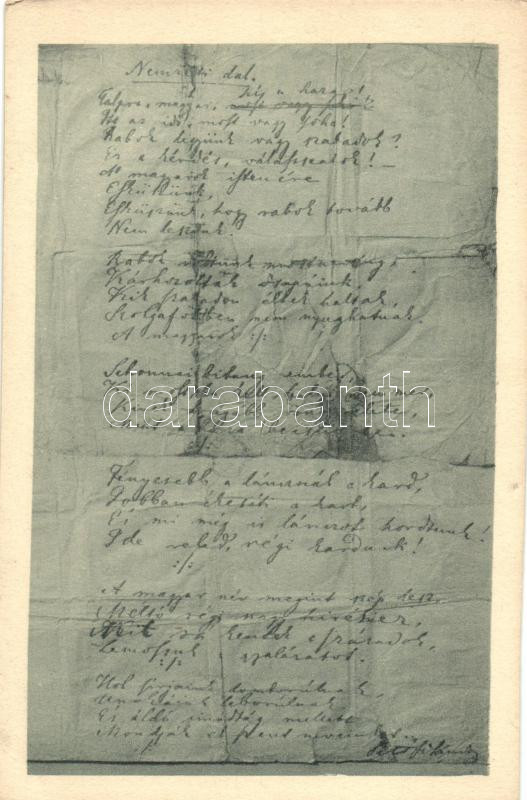 Nemzeti dal.
Talpra magyar, hí a haza!
Itt az idő, most vagy soha!
Rabok legyünk vagy szabadok?
Ez a kérdés, válasszatok! –
A magyarok istenére
Esküszünk,
Esküszünk, hogy rabok tovább
Nem leszünk!
Rabok voltunk mostanáig,
Kárhozottak ősapáink,
Kik szabadon éltek haltak,
Szolgaföldben nem nyughatnak.
A magyarok :/:
Sehonnai bitang ember,
darabanth
:/:
Fényesebb a láncznál a kard,
Jobban ékesíti a kart,
És mi mégis lánczot hordtunk!
Ide veled, régi kardunk!
:/:
A magyar név megint szép lesz,
Méltó régi nagy hiréhez,
Mit rá kentek a századok,
Lemossuk a gyalázatot.
:/:
Hol sirjaink domborulnak,
Unokáink leborulnak,
És áldó imádság mellett
Mondják el szent neveinket.
Petőfi Sándor